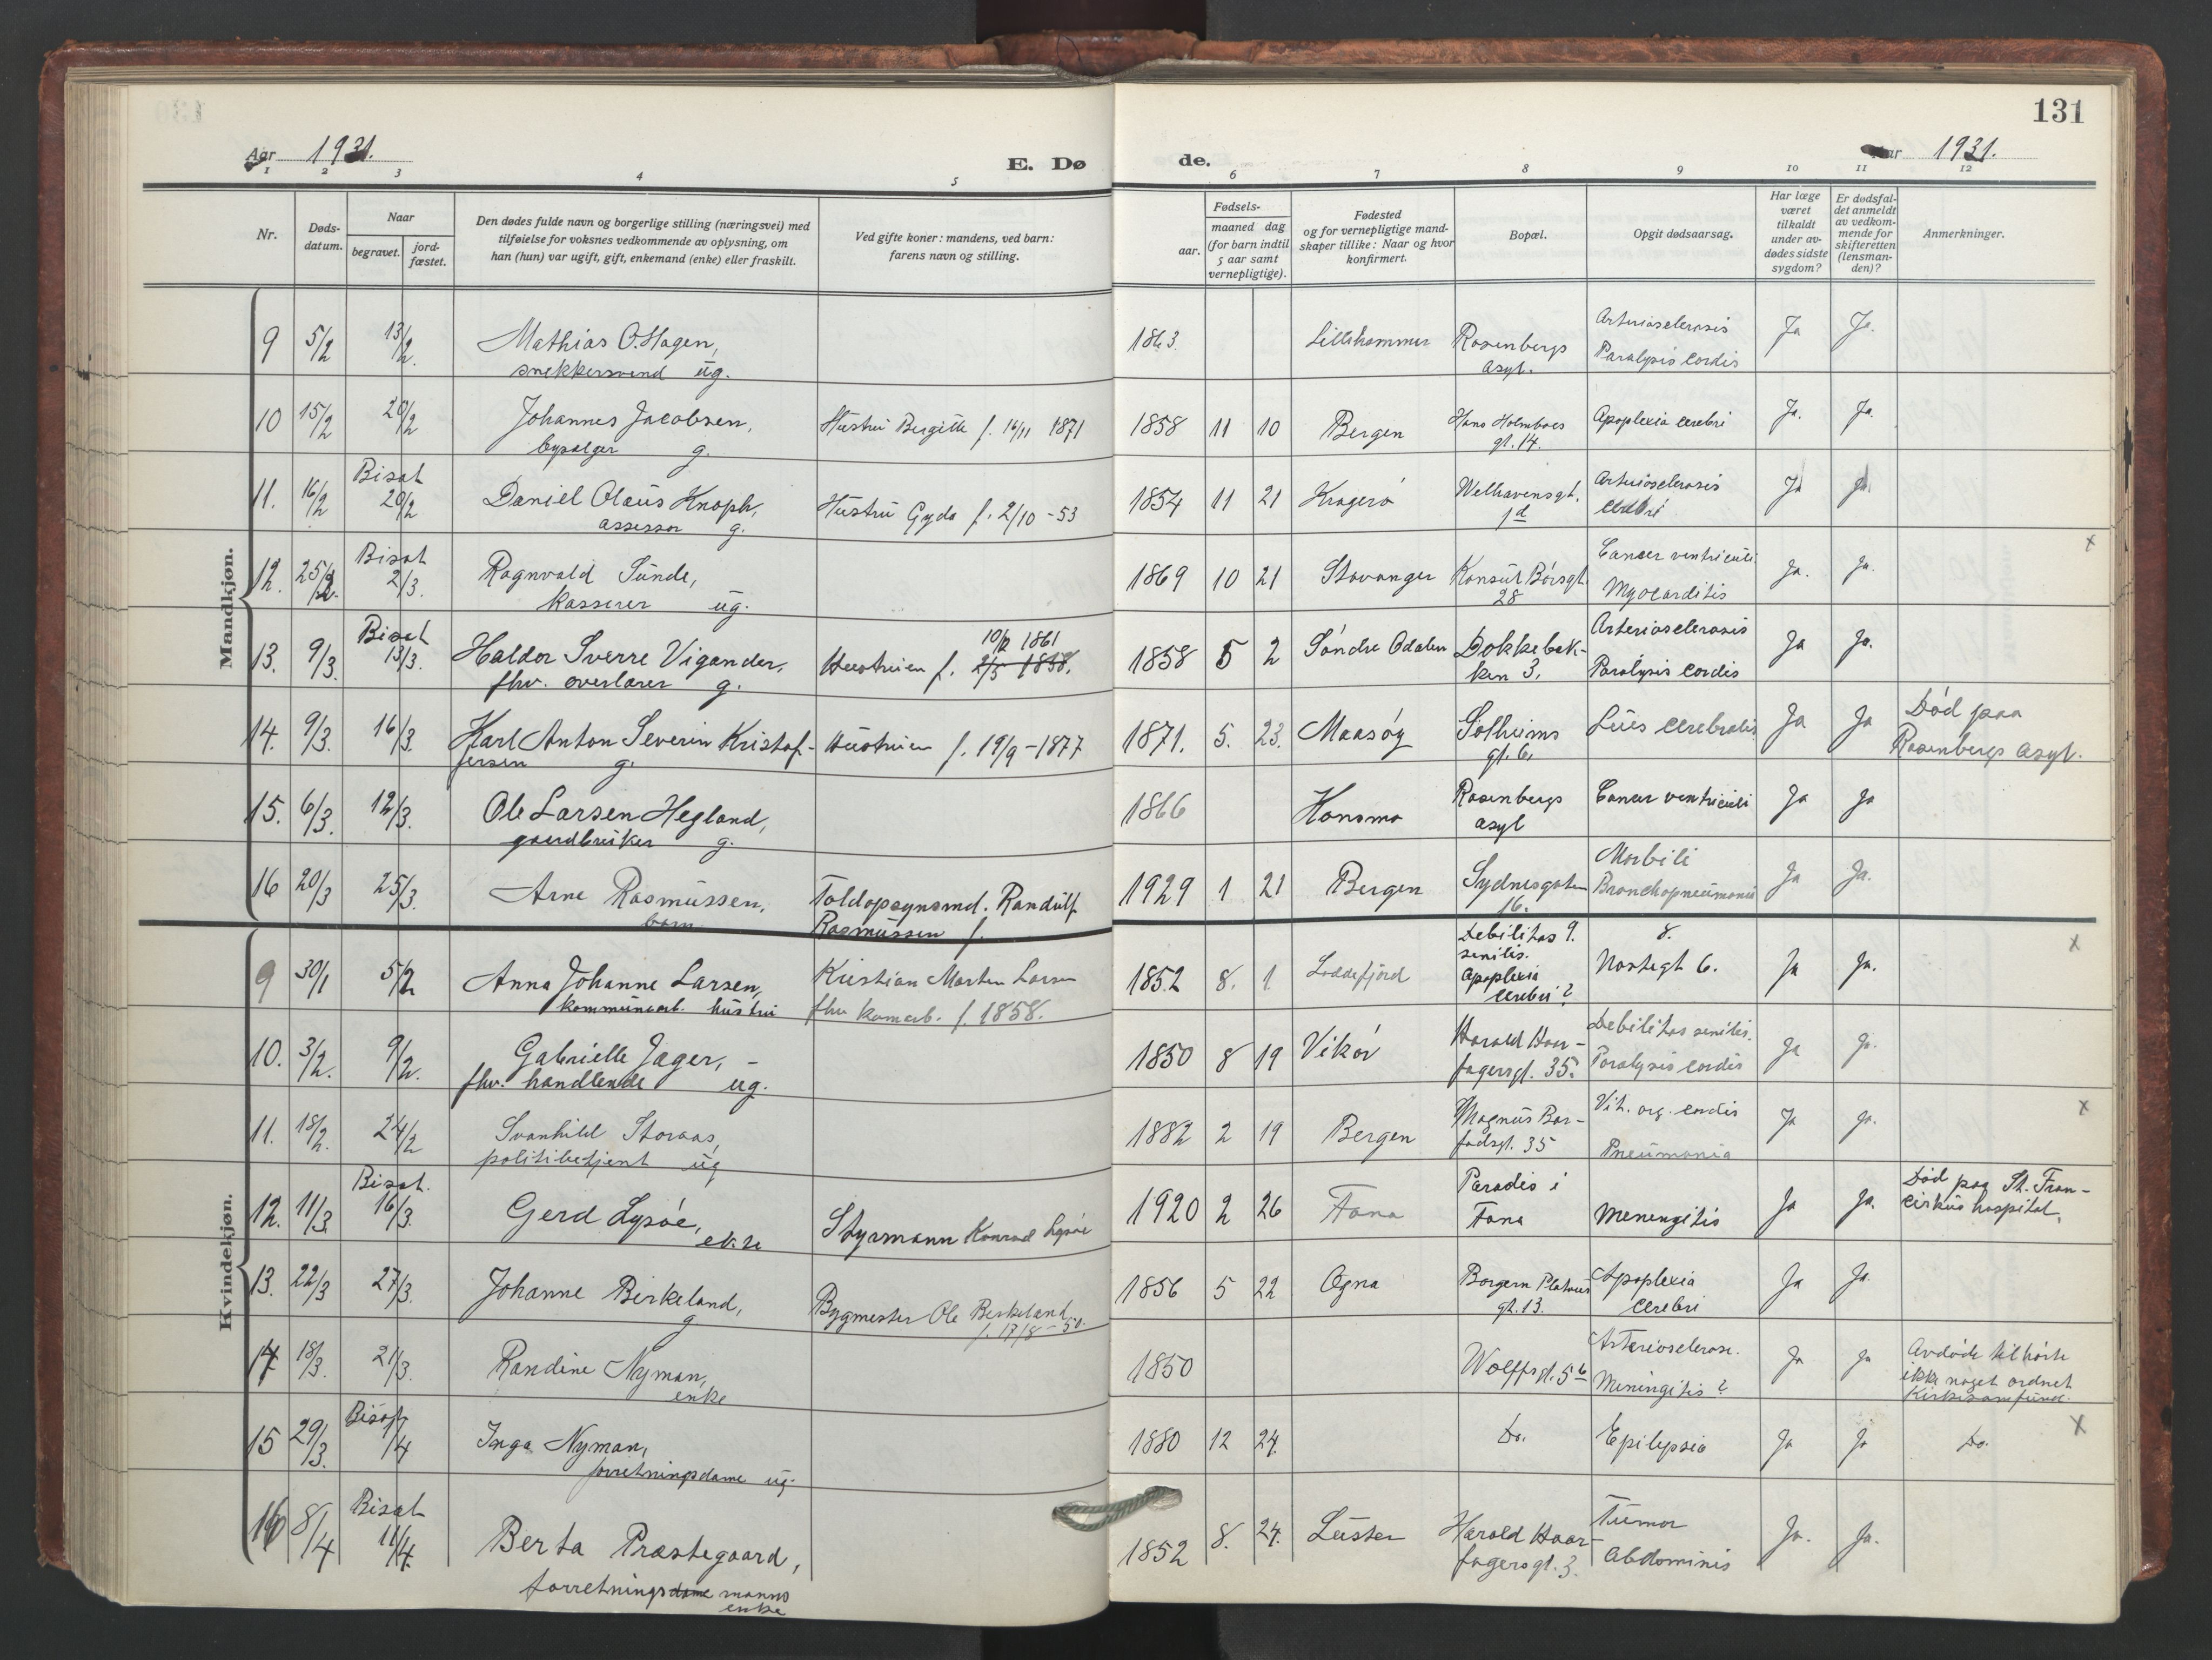 131
Aar 1931.
E. Dø
de.
Aar 1931.
1 2 3 4 5 6 7 8 9 10 11 12
Nr.
Døds-
datum.
Naar
begravet.
jord-
fæstet.
Den dødes fulde navn og borgerlige stilling (næringsvei) med
tilføielse for voksnes vedkommende av oplysning, om
han (hun) var ugift, gift, enkemand (enke) eller fraskilt.
Ved gifte koner: mandens, ved barn:
farens navn og stilling.
Fødsels-
aar.
maaned dag
(for barn indtil
5 aar samt
vernepligtige).
Fødested
og for vernepligtige mand-
skaper tillike: Naar og hvor
konfirmert.
Bopæl.
Opgit dødsaarsag.
Har læge
været
tilkaldt
under av-
dødes sidste
sygdom?
Er dødsfal-
det anmeldt
av vedkom-
mende for
skifteretten
(lensman-
den)?
Anmerkninger.
Mandkjøn.
9 5/2 13/2. Mathias O. Hagen, 1863. Lillehammer Rosenbergs Arteriosclerosis Ja Ja.
snekkersvend ug. asyl. Paralysis cordis
10 15/2 20/2 Johannes Jacobsen, Hustru Bergitte f. 16/11 1871 1858 11 10 Bergen Hans Holmboes Apoplexia cerebri Ja. Ja.
bypælger g. gt. 14.
Bisat
11. 16/2 20/2 Daniel Olaus Knoph, Hustru Gyda f. 2/10 -53 1854 11 21 Kragerø Welhavensgt. Arteriosclerosis Ja Ja.
assessor g. 1d cerebri
Bisat
12. 25/2. 2/3. Ragnvald Sunde, 1869 10 21 Stavanger Konsul Børsgt. Cancer ventriculi Ja. Ja. x
kasserer ug. 28 Myocarditis
Bisat
13. 9/3. 13/3. Haldor Sverre Vigander, Hustruen f. 2/5 1858. 10/12 1861 1858 5 2 Søndre Odalen Dokkebak- Arteriosclerosis Ja Ja.
fhv. overlærer g. ken 3. Paralysis cordis
14. 9/3. 16/3. Karl Anton Severin Kristof- Hustruen f. 19/9 - 1877 1871. 5. 23. Maasøy Solheims Lues cerebralis Ja Ja Død paa
fersen g. gt. 6. Rosenbergs asyl.
15. 6/3. 12/3. Ole Larsen Hegland, 1866 Hansmo Rosenbergs Cancer ventriculi Ja Ja
gaardbruker g. asyl
16 20/3 25/3. Arne Rasmussen, Toldopsynsmd. Randulf 1929 1 21 Bergen Sydnesgaten Morbili Ja Ja.
barn Rasmussen f. 16. Bronchopneumonia
Kvindekjøn.
9 30/1 5/2 Anna Johanne Larsen, Kristian Morten Larsen 1852 8. 1 Loddefjord Debilitas 9. 8. Ja Ja. x
kommunearb. hustru fhv komarb. f. 1858. senilis. Apoplexia cerebri? Nostegt 6.
10. 3/2. 9/2. Gabrielle Jager, - 1850 8 19 Vikør Harald Haar- Debilitas senilis. Ja Ja.
fhv. handlende ug. fagersgt. 35. Paralysis cordis
11. 18/2. 24/2 Svanhild Storaas, 1882 2 19 Bergen Magnus Bar- Vit. org. cordis Ja Ja. x
politibetjent ug fodsgt. 35 Pneumonia
Bisat.
12. 11/3. 16/3. Gerd Lysøe, Styrmann Konrad Lysøe 1920 2 26 Fana Paradis i Menengitis Ja Ja. Død paa St. Fran-
Fana ciskus hospital.
13. 22/3 27/3. Johanne Birkeland, Bygmester Ole Berkeland 1856 5 22 Ogna Borgerm Platous Apoplexia Ja Ja.
g f. 17/8 - 50. gt. 13. cerebri
14 18/3. 21/3. Randine Nyman, 1850 Wolffsgt. 5b Arteriosclerose. Ja Ja Avdøde tilhørte
enke Meningitis? ikke noget ordnet
kirkesamfund.
Bisat
15 29/3. 1/4 Inga Nyman, 1880 12 24. Do. Epilepsia Ja Ja Do. x
forretningsdame ug.
Bisat
16 8/4 11/4. Berta Præstegaard, 1852 8. 24. Luster Harald Haar- Tumor Ja. Ja.
forretningsdame manns fagersgt. 3. Abdominis
enke